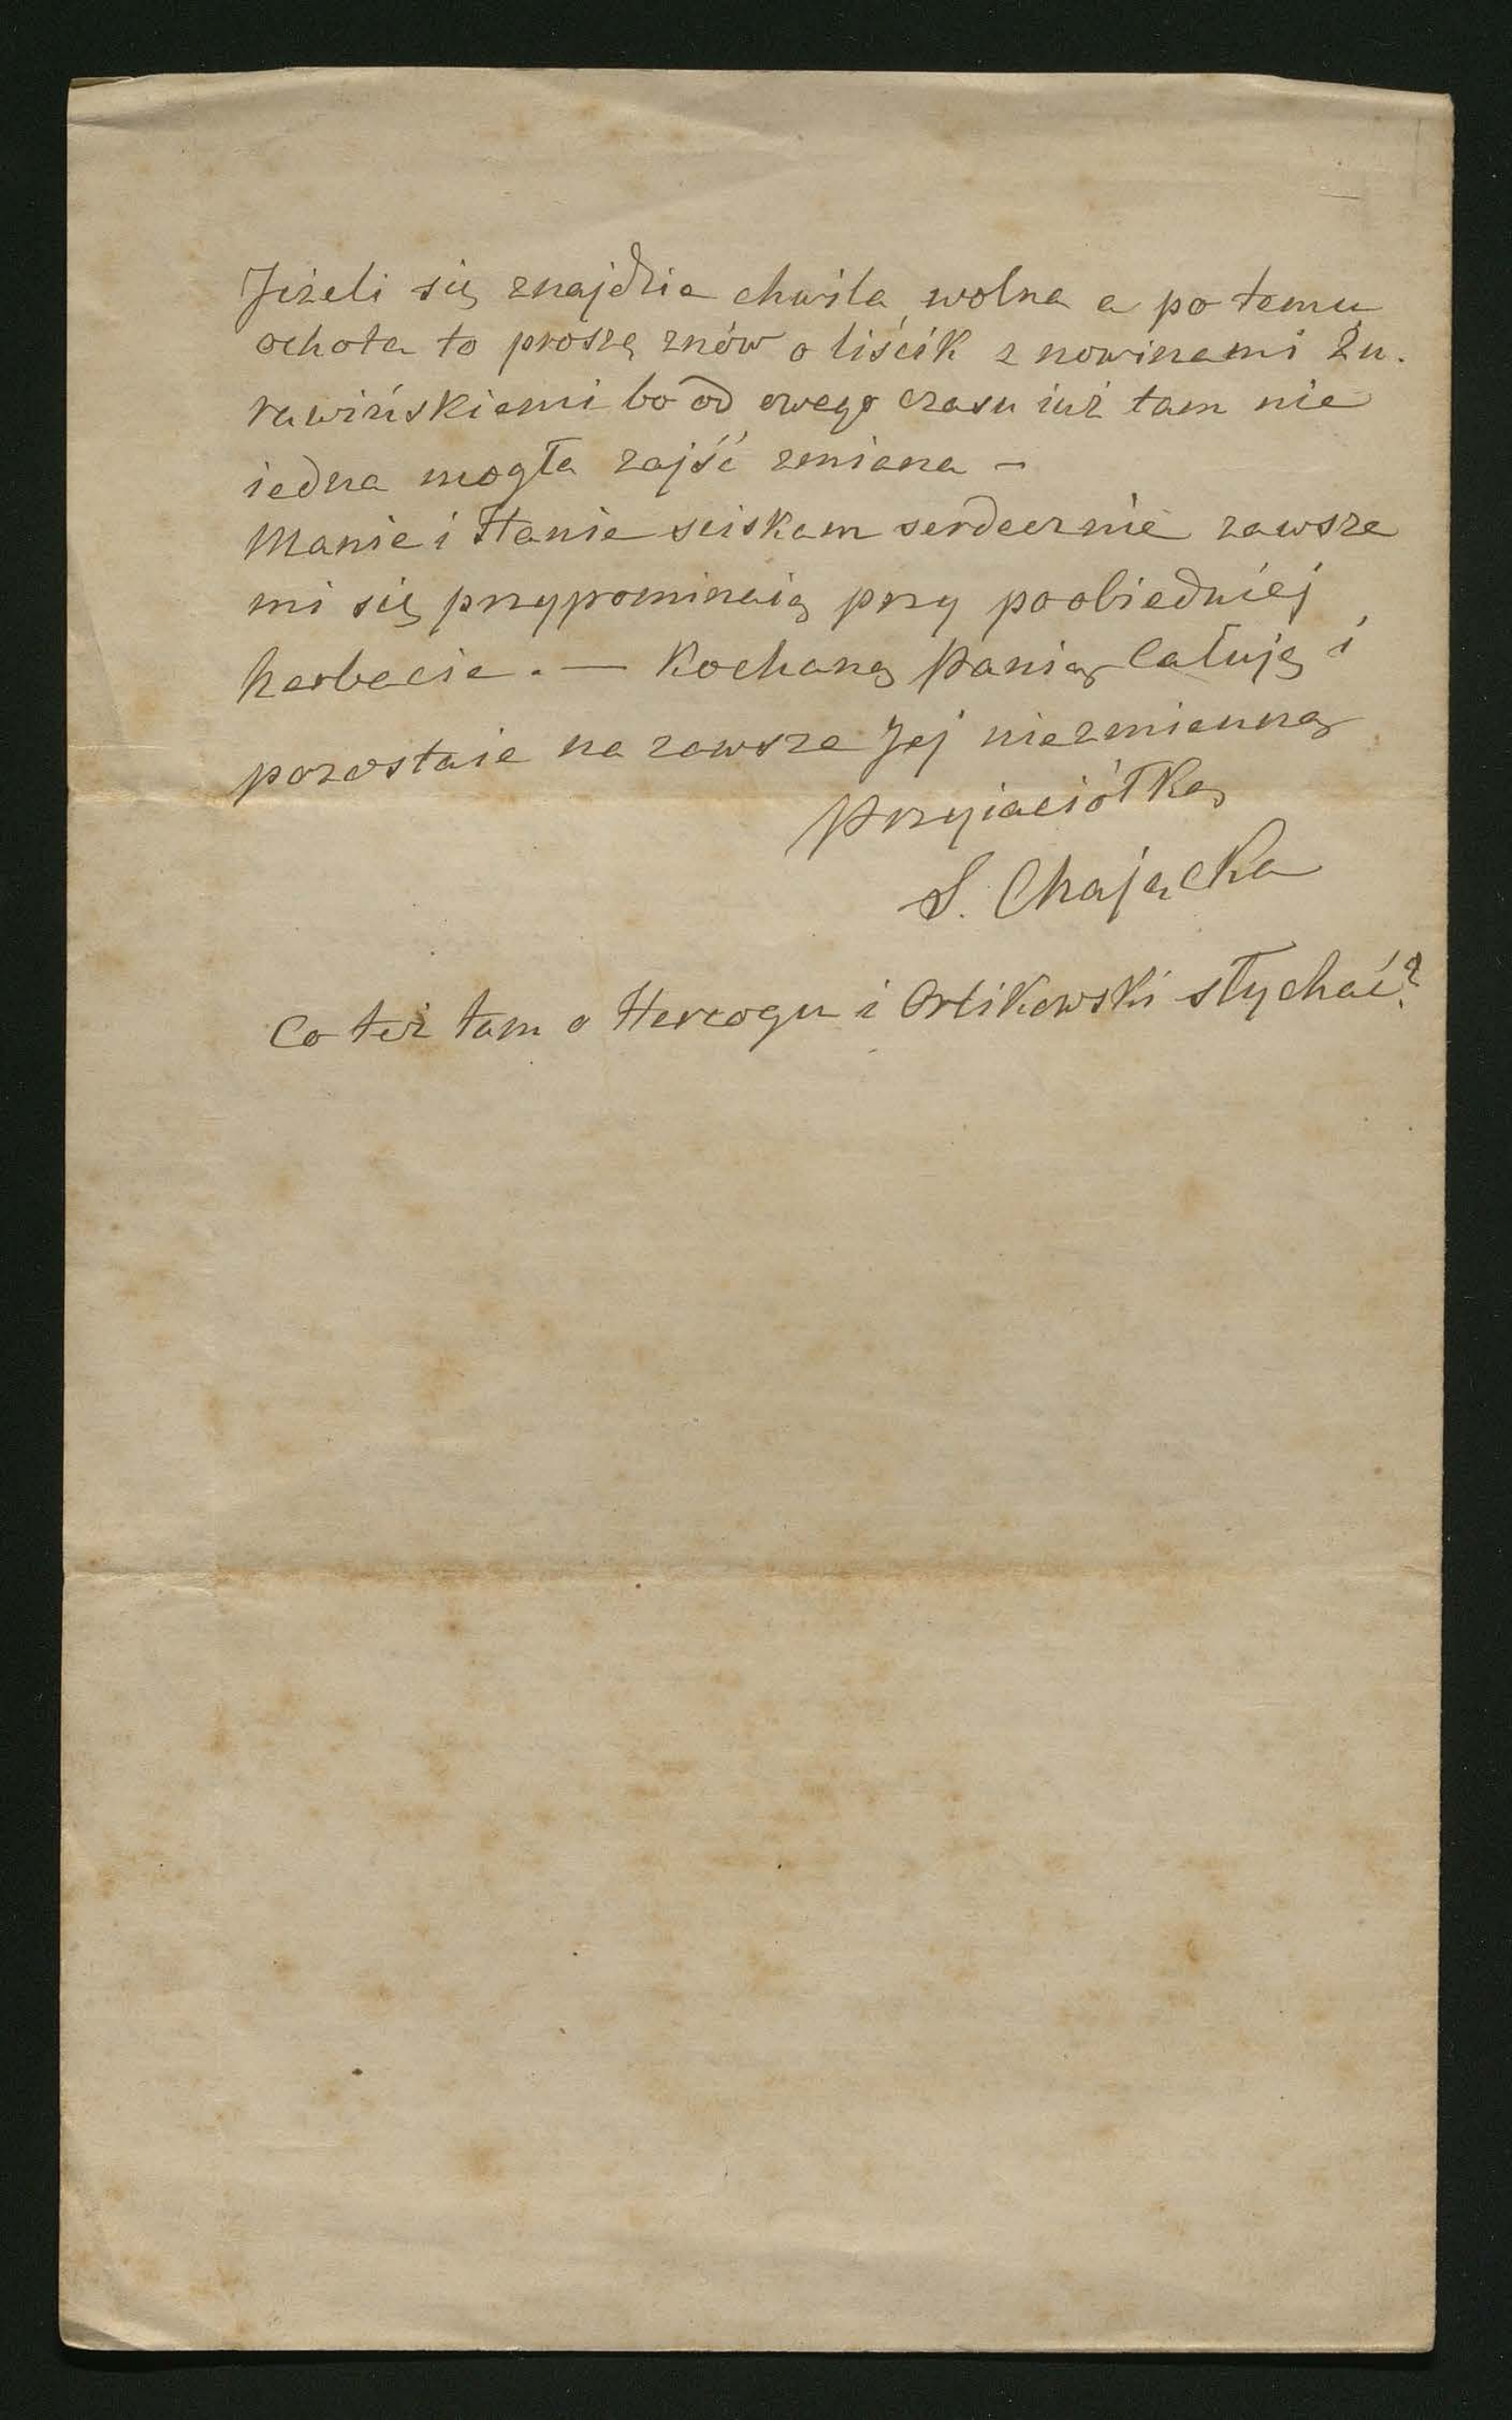 Jeżeli się znajdzie chwila wolna a po temu
ochota to proszę znów o liścik z nowinami Żu.
rawińskiemi bo od owego czasu iuż tam nie
iedna mogła zajść zmiana –
Manie i Hanie sciskam serdecznie zawsze
mi się przypominaią przy poobiedniej
herbacie. — Kochaną Panią Całuję i
pozostaie na zawsze Jej niezmienną
Przyiaciółką
S. Chającka
Co też tam o Hercogu i Orlikowski słychać?